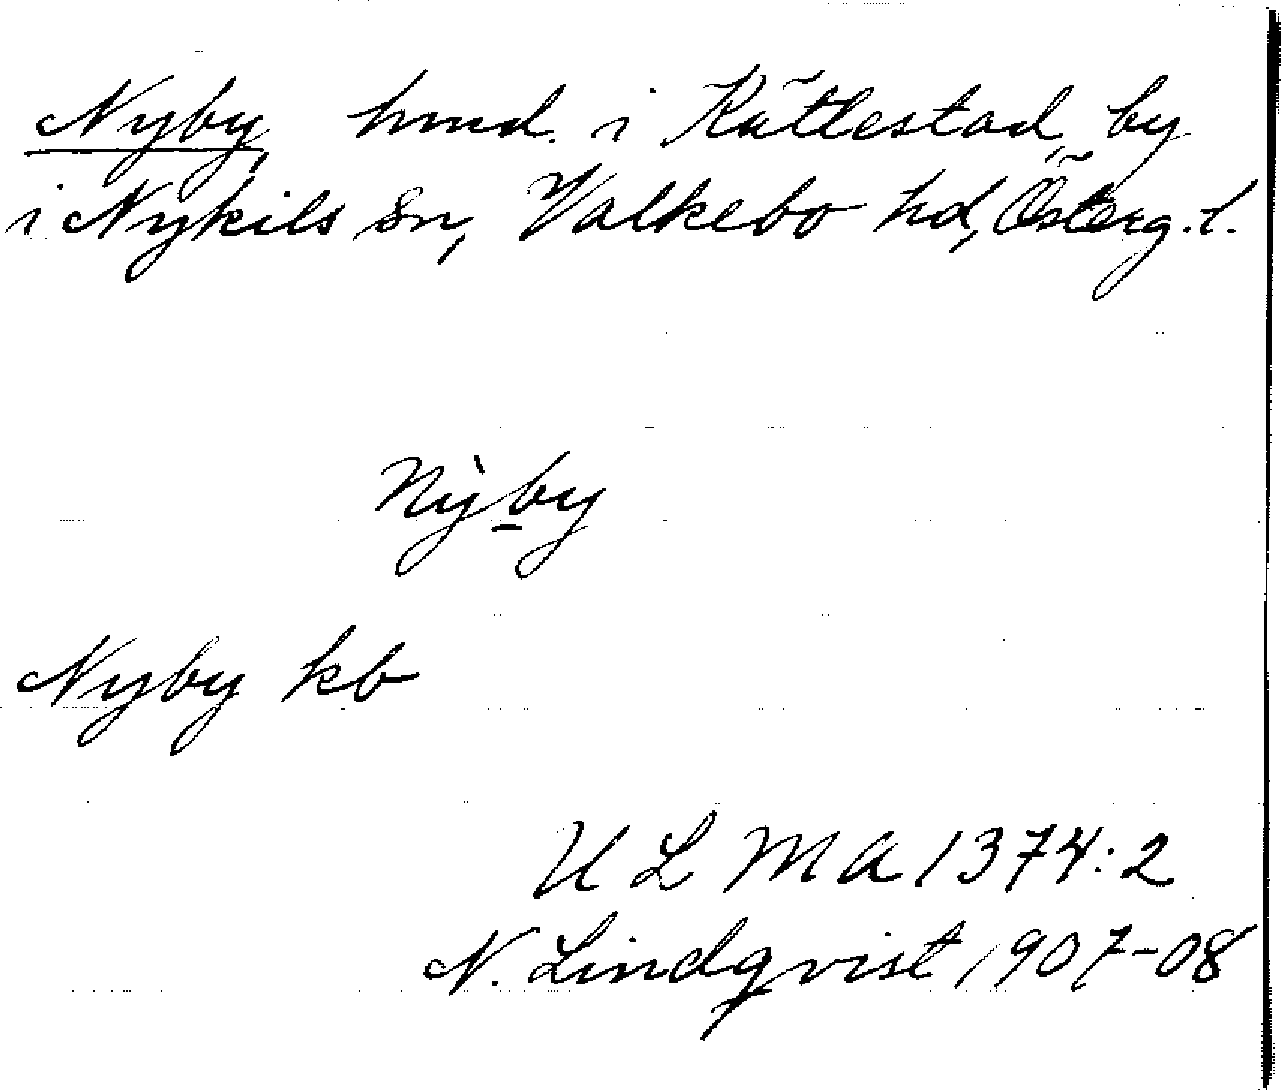 Nyby, hmd. i Kättlestad, by
i Nykils sn, Valkebo hd, Österg. l.
Nỳby
Nyby kb
ULMA 1374:2
N. Lindqvist 1907-08